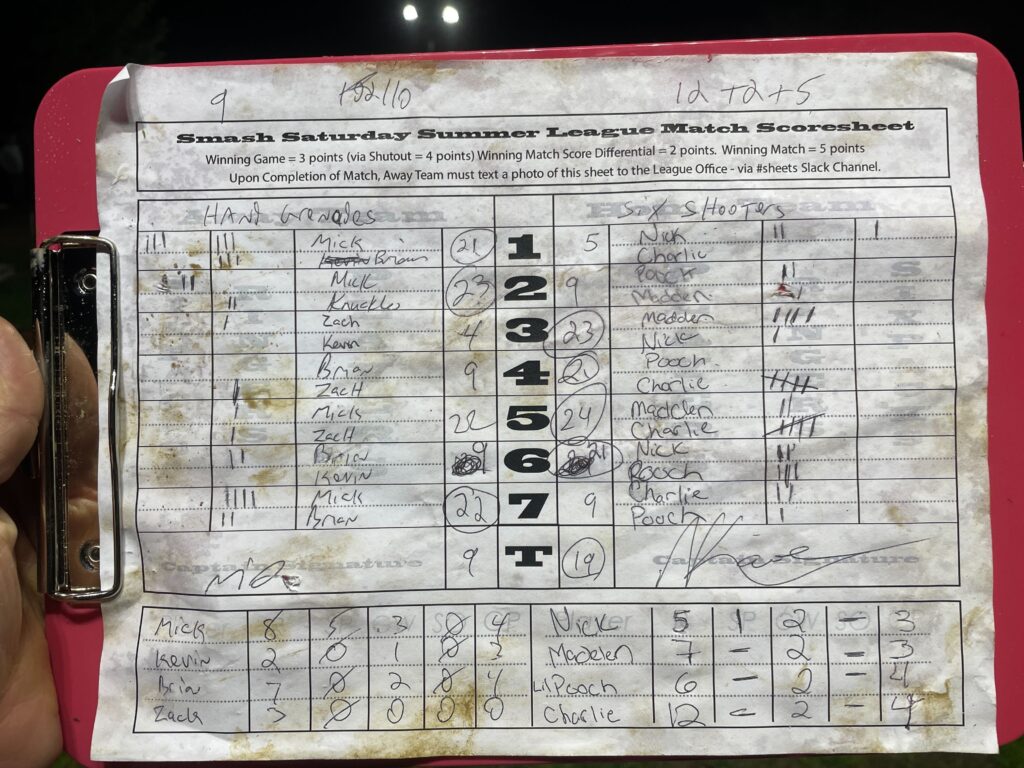 9 110 12 +2+5
Smash Saturday Summer League Match Scoresheet
Winning Game = 3 points (via Shutout = 4 points) Winning Match Score Differential = 2 points. Winning Match = 5 points
Upon Completion of Match, Away Team must text a photo of this sheet to the League Office - via #sheets Slack Channel.
HAND GrENADES SIX SHOOTERS
Mick 21 1 5 Nick
Kevin Brian Charlie
Mick 23 2 9 Pooch
Knuckles Madden
Zach 4 3 23 Madden
Kevin Nick
Brian 9 4 21 Pooch
ZacH Charlie
Mick 22 5 24 Madden
ZacH Charlie
Brian 9 6 21 Nick
Kevin Pooch
Mick 22 7 9 Charlie
Brian Pooch
9 T 19
Captain Signature Captain Signature
Mick 8 5 3 0 4 Nick 5 1 2 - 3
Kevin 2 0 1 0 Madelen 7 - 2 - 3
Brian 7 0 2 0 4 Lil Pooch 6 - 2 - 4
Zach 3 0 0 0 0 Charlie 12 - 2 - 4